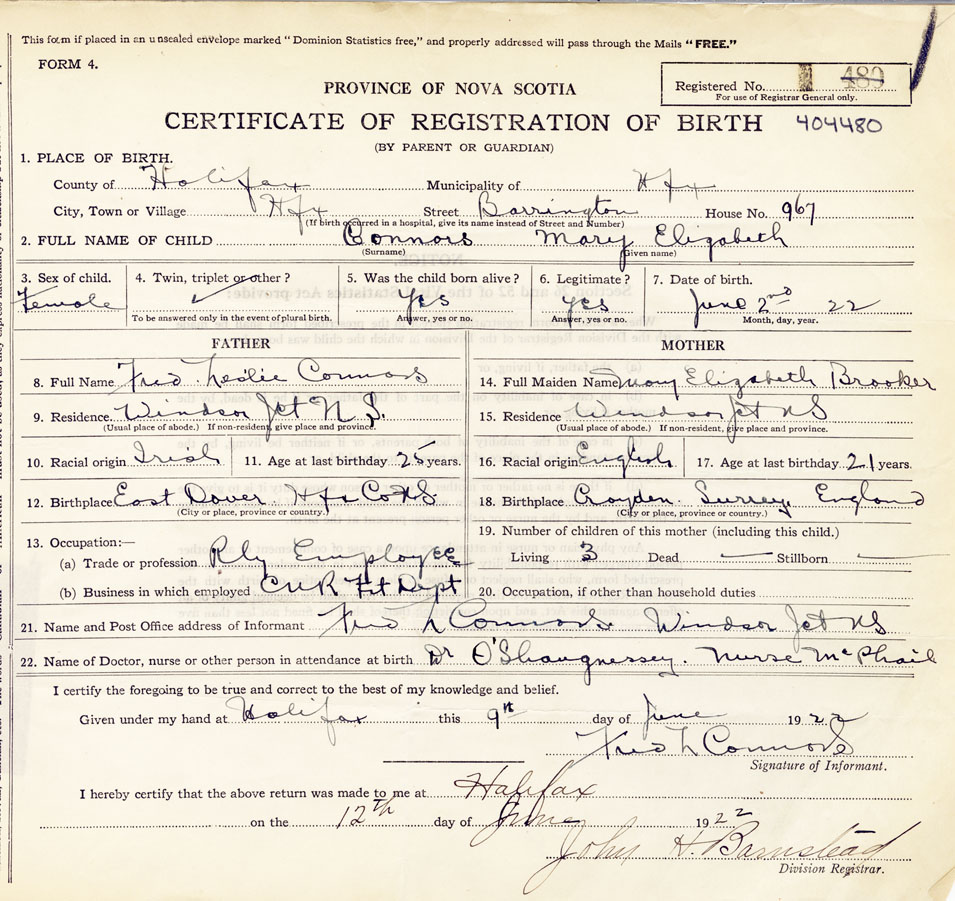 This form if placed in an unsealed envelope marked "Dominion Statistics free," and properly addressed will pass through the Mails "FREE."
FORM 4.
Registered No. 480
For use of Registrar General only.
PROVINCE OF NOVA SCOTIA
CERTIFICATE OF REGISTRATION OF BIRTH 404480
(BY PARENT OR GUARDIAN)
1. PLACE OF BIRTH.
County of Halifax Municipality of Hfx
City, Town or Village Hfx Street Barrington House No. 967
(If birth occurred in a hospital, give its name instead of Street and Number)
2. FULL NAME OF CHILD Connors Mary Elizabeth
(Surname) (Given name)
3. Sex of child. 4. Twin, triplet or other? 5. Was the child born alive? 6. Legitimate? 7. Date of birth.
Female ✓ Yes Yes June 2nd 22
To be answered only in the event of plural birth. Answer, yes or no. Answer, yes or no. Month, day, year.
FATHER MOTHER
8. Full Name Fred Leslie Connors 14. Full Maiden Name Mary Elizabeth Brooker
9. Residence Windsor Jct N.S. 15. Residence Windsor Jct NS
(Usual place of abode.) If non-resident, give place and province. (Usual place of abode.) If non-resident, give place and province.
10. Racial origin Irish 11. Age at last birthday 25 years. 16. Racial origin English 17. Age at last birthday 21 years.
12. Birthplace East Dover Hfx Co NS. 18. Birthplace Croyden. Surrey England
(City or place, province or country.) (City or place, province or country.)
19. Number of children of this mother (including this child.)
13. Occupation:—
(a) Trade or profession Rly Employee Living 3 Dead — Stillborn —
(b) Business in which employed CNR Frt Dept 20. Occupation, if other than household duties
21. Name and Post Office address of Informant Fred L Connors. Windsor Jct NS
22. Name of Doctor, nurse or other person in attendance at birth Dr O'Shaugnessey. Nurse McPhail
I certify the foregoing to be true and correct to the best of my knowledge and belief.
Given under my hand at Halifax this 9th day of June 1922
Fred L Connors
Signature of Informant.
I hereby certify that the above return was made to me at Halifax
on the 12th day of June 1922
John H. Barnstead
Division Registrar.